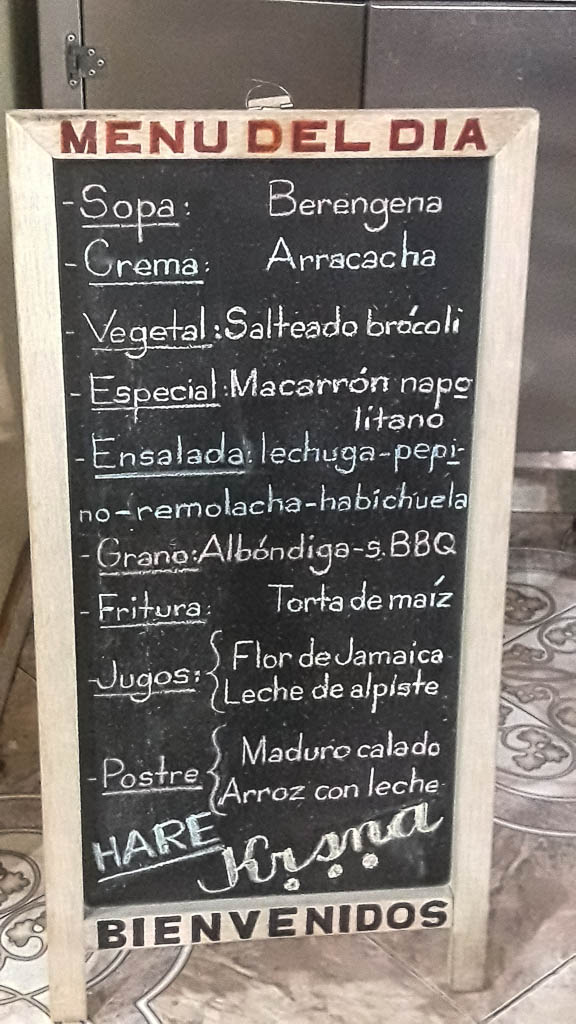 MENU DEL DIA
- Sopa: Berengena
- Crema: Arracacha
- Vegetal: Salteado brócoli
- Especial: Macarrón napo
litano
- Ensalada: lechuga-pepi-
no-remolacha-habichuela
- Grano: Albóndiga-s. BBQ
- Fritura: Torta de maíz
- Jugos: { Flor de Jamaica
Leche de alpiste
- Postre { Maduro calado
Arroz con leche
HARE Krsna
BIENVENIDOS